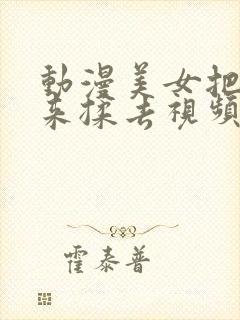 動漫美女把
來揉去視頻
霍泰普